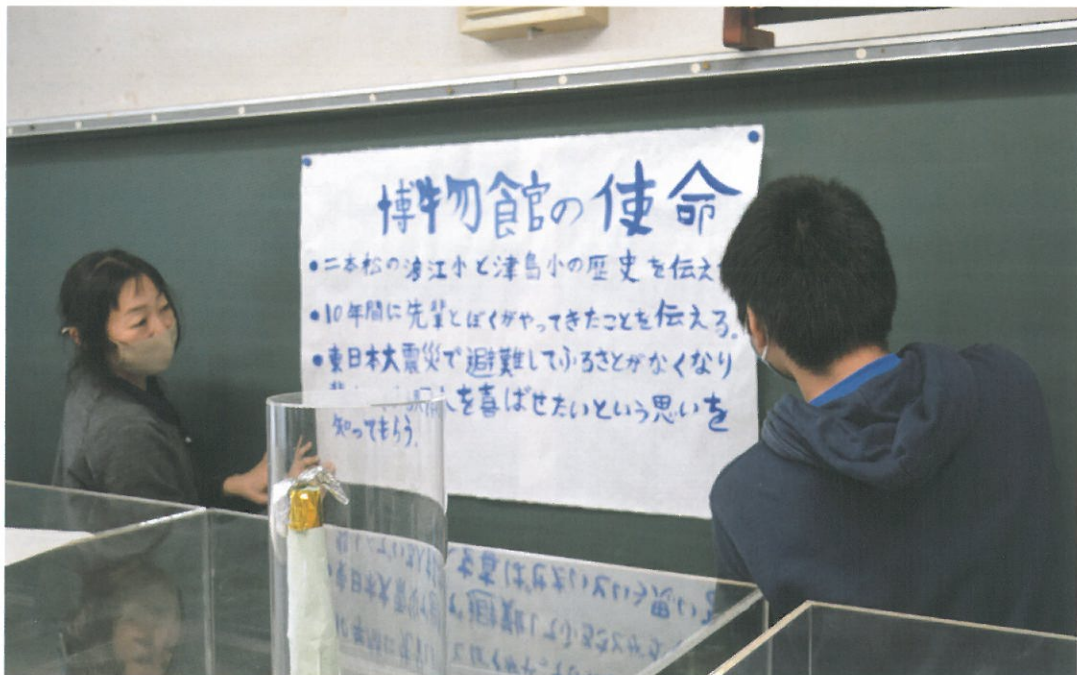 博物館の使命
・二本松の浪江小と津島小の歴史を伝え
・10年間に先輩とぼくがやってきたことを伝える。
・東日本大震災で避難してふるさとがなくなり
人を喜ばせたいという思いを
知ってもらう。